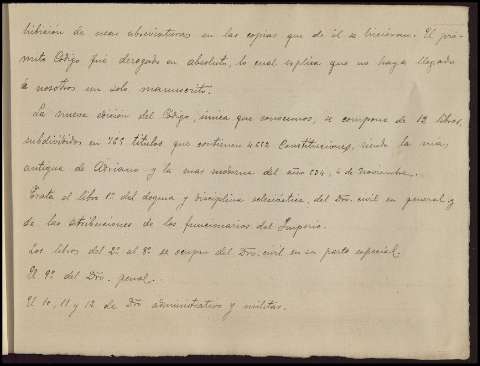 hibición de usar abreviaturas en las copias que de él se hicieran. El pri-
mitivo Código fué derogado en absoluto, lo cual explica que no haya llegado
á nosotros un solo manuscrito.
La nueva edición del Código, única que conocemos, se compone de 12 libros,
subdivididos en 765 títulos que contienen 4652 Constituciones, siendo la mas
antigua de Adriano y la mas moderna del año 534, 4 de Noviembre.
Trata el libro 1º del dogma y disciplina eclesiástica, del Dro. civil en general y
de las atribuciones de los funcionarios del Imperio.
Los libros del 2º al 8º se ocupan del Dro. civil en su parte especial.
El 9º del Dro. penal.
El 10, 11 y 12 de Dro administrativo y militar.